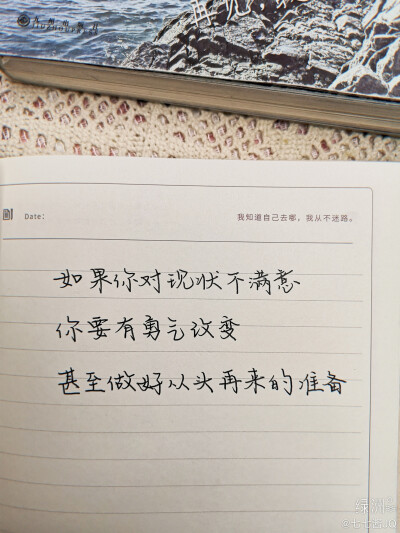 再见
Date:
我知道自己去哪，我从不迷路。
如果你对现状不满意
你要有勇气改变
甚至做好从头再来的准备
绿洲